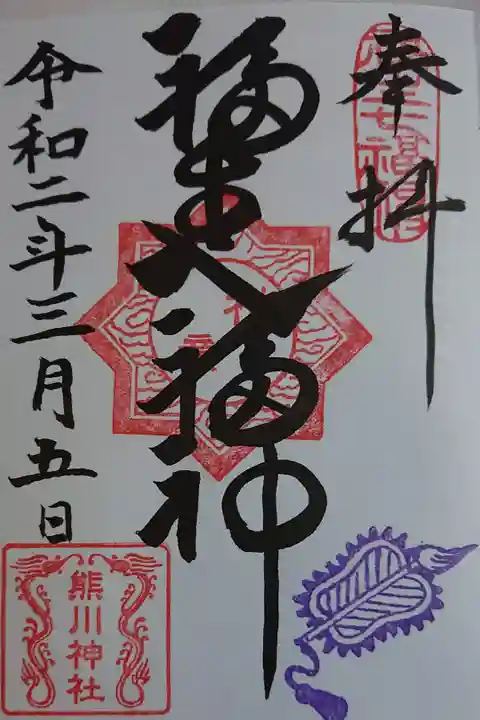 奉拝
福生七福神
令和二年三月五日
熊川神社